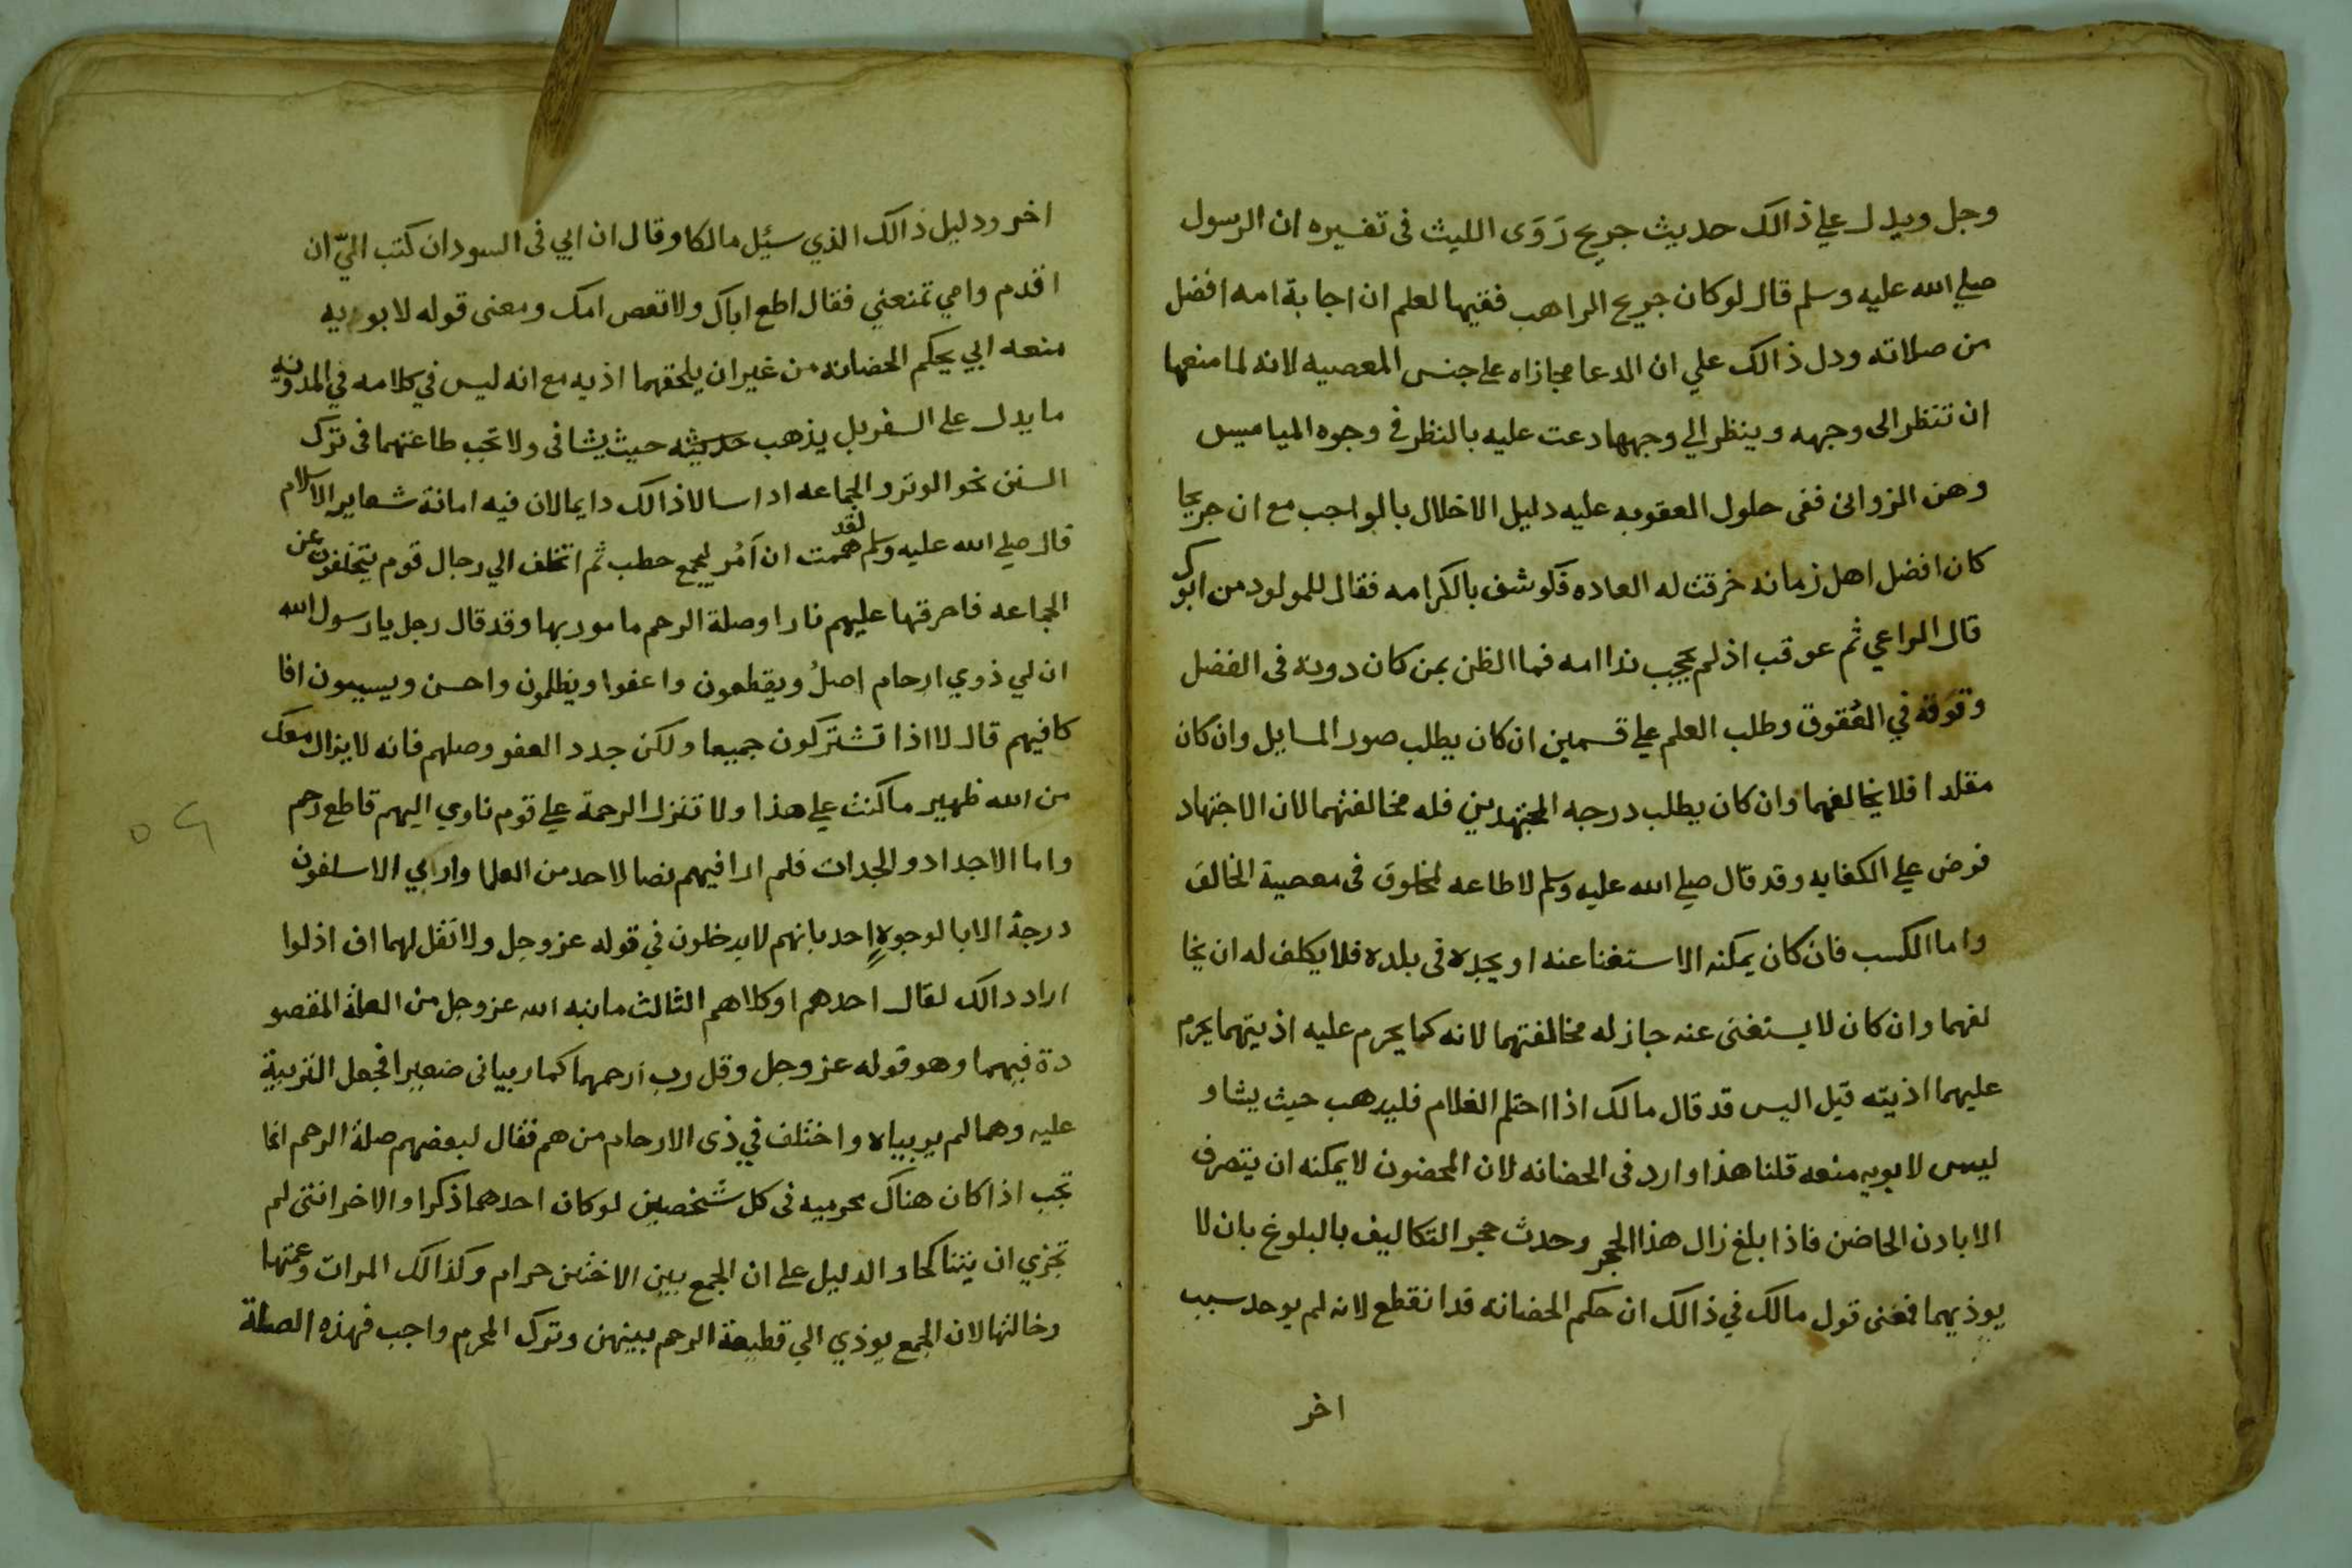 وجل ويدل علي ذالك حديث جريج رَوَى الليث فى تفسيره ان الرسول
صلي الله عليه وسلم قال لو كان جريج الراهب فقيها لعلم ان اجابة امه افضل
من صلاته ودل ذالك علي ان الدعا مجازاه علي جنس المعصيه لانه لما منعها
ان تنظر الى وجهه وينظر الي وجهها دعت عليه بالنظر في وجوه المياميس
وهن الزوانى ففى حلول العقوبه عليه دليل الاخلال بالواجب مع ان جريجا
كان افضل اهل زمانه خرقت له العاده فكوشف بالكرامه فقال للمولود من ابوك
قال الراعي ثم عوقب اذ لم يجيب ندا امه فما الظن بمن كان دونه فى الفضل
وفوقه في العُقوق وطلب العلم علي قسمين ان كان يطلب صور المسايل وان كان
مقلدا فلا يخالفهما وان كان يطلب درجه المجتهدين فله مخالفتهما لان الاجتهاد
فرض علي الكفايه وقد قال صلي الله عليه وسلم لا طاعه لمخلوق فى معصية الخالق
واما الكسب فان كان يمكنه الاستغنا عنه او يجده فى بلده فلا يكلف له ان يخا
لفهما وان كان لا يستغنى عنه جاز له مخالفتهما لانه كما يحرم عليه اذيتهما يحرم
عليهما اذيته قيل اليس قد قال مالك اذا احتلم الغلام فليدهب حيث يشا و
ليس لابويه منعه قلنا هذا وارد فى الحضانه لان المحضون لا يمكنه ان يتصرف
الا بادن الحاضن فاذا بلغ زال هذا الحجر وحدث حجر التكاليف بالبلوغ بان لا
يوذيهما فمعنى قول مالك في ذالك ان حكم الحضانه قد انقطع لانه لم يوجد سبب
اخر
اخر ودليل ذالك الذي سئيل مالكا وقال ان ابي فى السودان كتب اليّ ان
اقدم وامي تمنعني فقال اطع اباك ولا تعص امك ومعنى قوله لابويه
منعه ابي بحكم الحضانه من غير ان يلحقهما اذيه مع انه ليس في كلامه في المدونه
ما يدل على السفر بل يذهب حديثه حيث يشا فى ولا تجب طاعتهما فى ترك
السنن نحو الوتر والجماعه اد اسالا ذالك دايما لان فيه اماتة شعاير الاسلام
قال صلي الله عليه وسلم لقد هممت ان آمُر ليجمع حطب ثم اتخلف الي رجال قوم يتخلفون عن
الجماعه فاحرقها عليهم نارا وصلة الرحم مامور بها وقد قال رجل يا رسول الله
ان لي ذوي ارحام اصلُ ويقطعون واعفوا ويظلمون واحسن ويسييون افا
كافيهم قال لا اذا تشتركون جميعا ولكن جدد العفو وصلهم فانه لا يزال معك
من الله ظهير ما كنت علي هذا ولا تنزل الرحمة علي قوم ناوي اليهم قاطع رحم
واما الاجداد والجدات فلم ارا فيهم نصا لاحد من العلما وارابي الا سلفون
درجة الابا لوجوهٍ احد بانهم لا يدخلون في قوله عز وجل ولا تقل لهما اف اذ لوا
اراد دالك لقال احدهم او كلاهم الثالث ما نبه الله عز وجل من العلة المقصو
دة فيهما وهو قوله عز وجل وقل رب ارحمهما كما ربيانى صغيرا فجعل التربية
عليه وهما لم يربياه واختلف في ذى الارحام من هم فقال لبعضهم صلة الرحم انما
تجب اذا كان هناك محرميه فى كل شخصين لو كان احدهما ذكرا والاخر انثى لم
تجزي ان يتناكحا والدليل على ان الجمع بين الاختين حرام وكذالك المرات وعمتها
وخالتها لان الجمع يوذي الي قطيعة الرحم بينهن وترك المحرم واجب فهذه الصلة